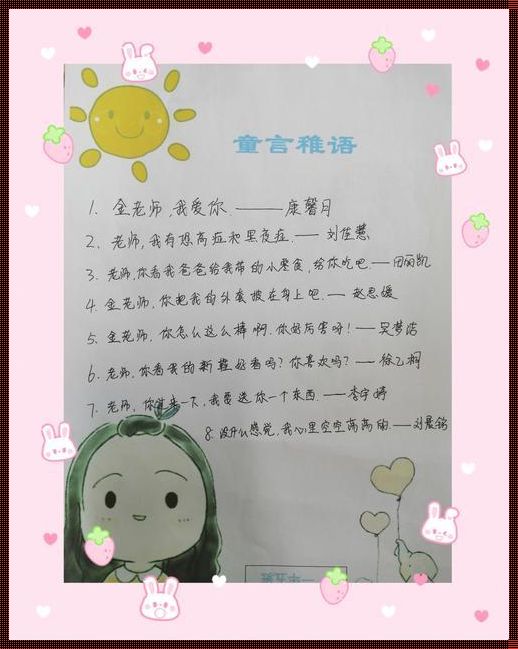 童言稚语
1. 金老师,我爱你.——康馨月
2、老师,我有恐高症和黑夜症.——刘佳慧
3. 老师,你看我爸爸给我带的小零食,给你吃吧.——田丽凯
4. 金老师,你把我的外套披在身上吧.——赵思媛
5. 金老师,你怎么这么棒啊.你好厉害呀!——吴梦洁
6. 老师,你看我的新鞋好看吗?你喜欢吗?——徐乙桐
7. 老师,你过来一下,我要送你一个东西.——李宇婷
8. 没什么感觉,我心里空空荡荡的.——刘晨铭